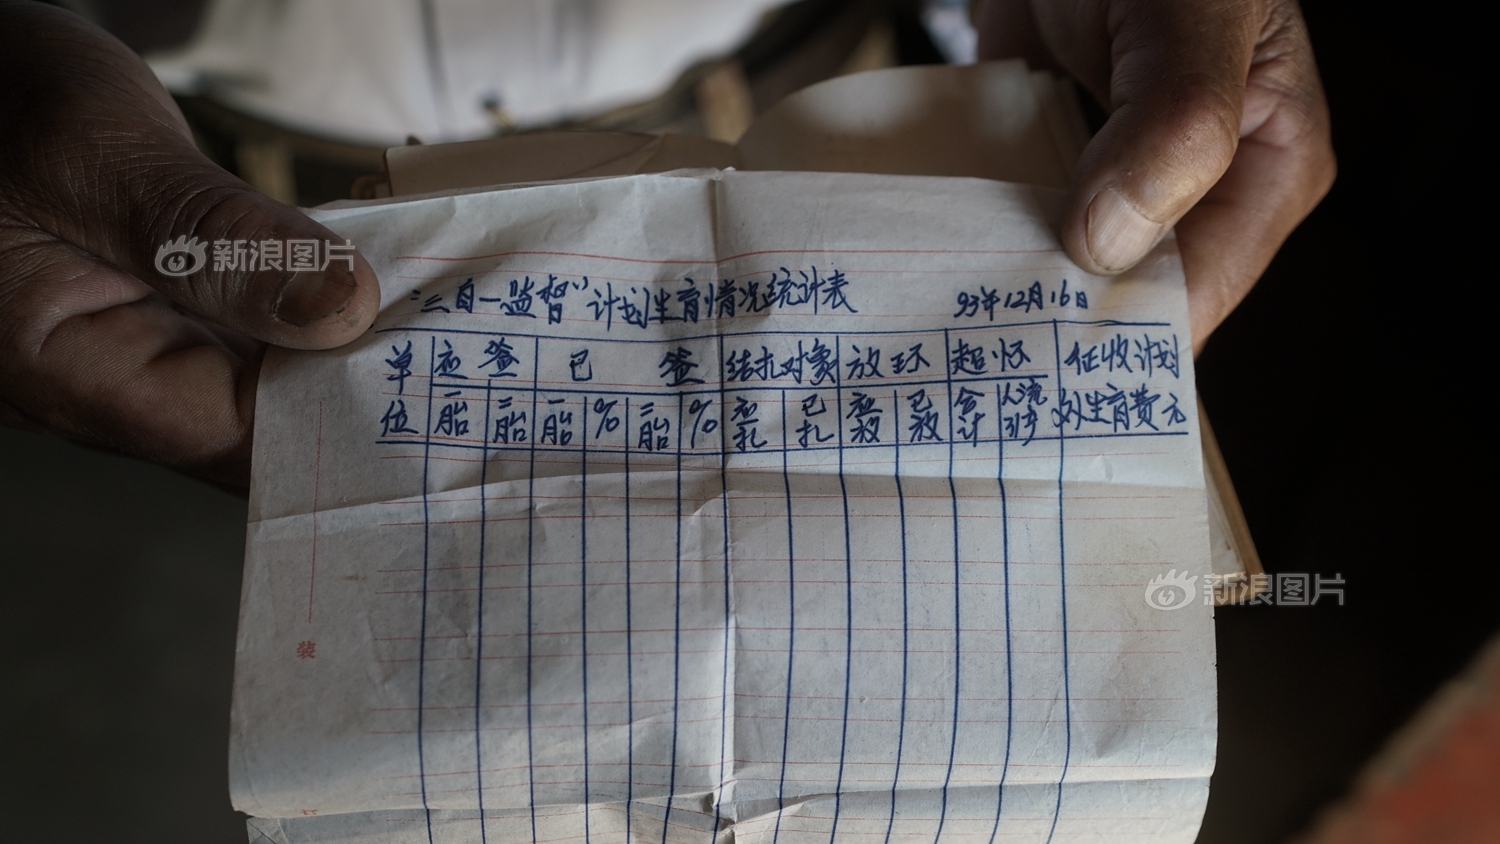 新浪图片
“三自一监督”计划生育情况统计表 93年12月16日
单位 应签 已签 结扎对象 放环 超怀 征收计划外生育费元
一胎 二胎 一胎 % 二胎 % 应扎 已扎 应放 已放 合计 人流引产
新浪图片
装
订